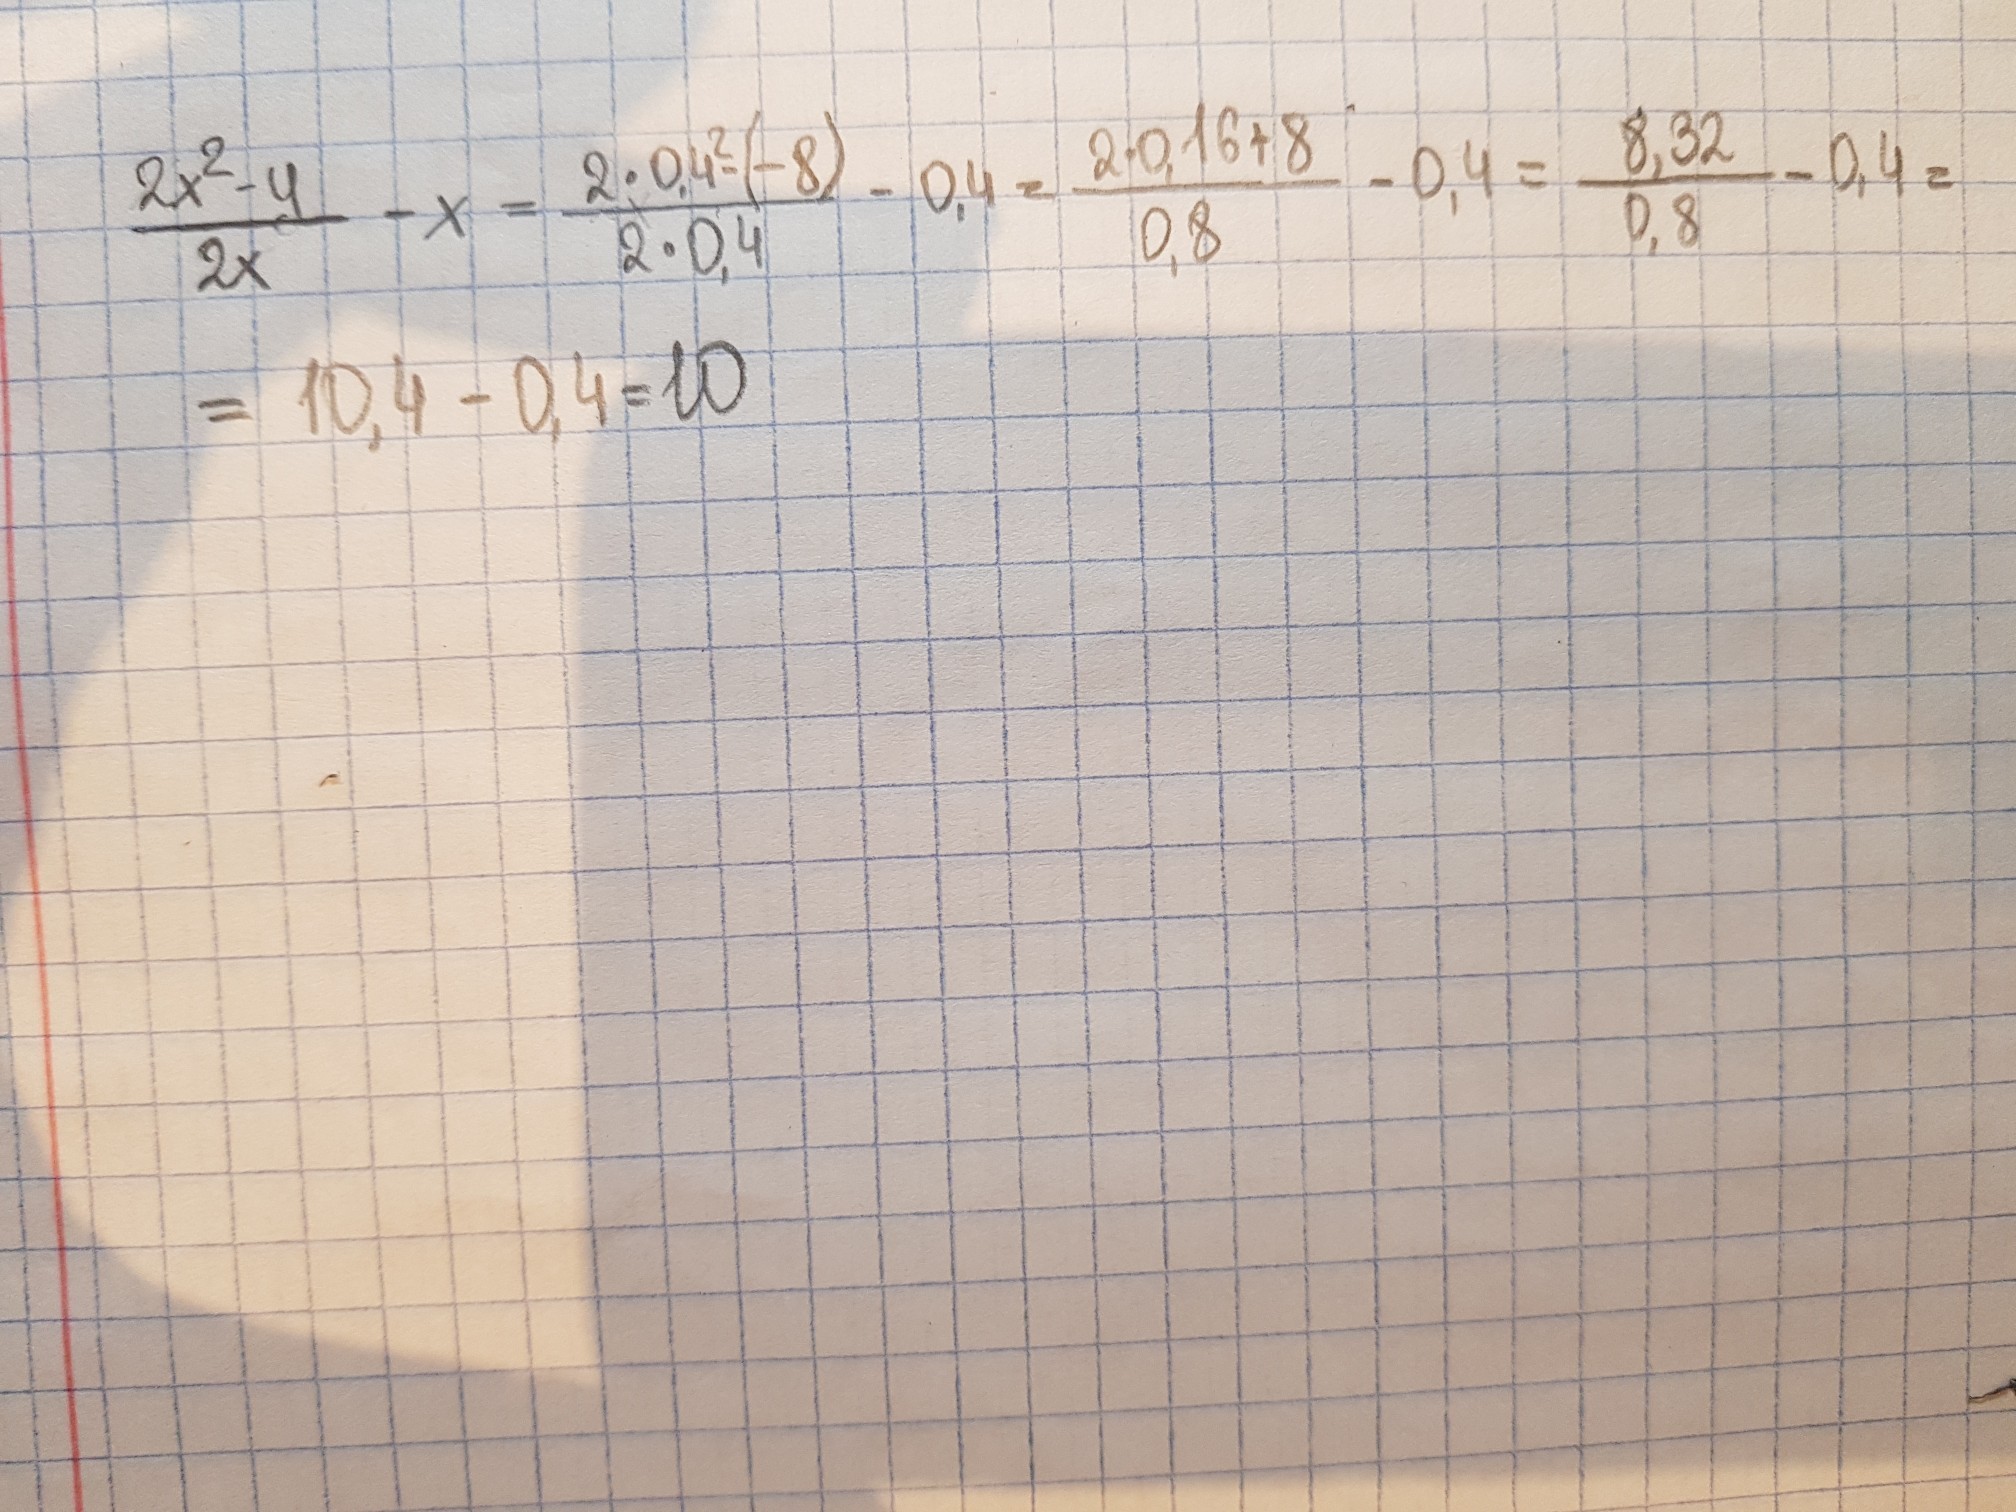 (2x² - y)/(2x) - x = (2·0,4² - (-8))/(2·0,4) - 0,4 = (2·0,16+8)/(0,8) - 0,4 = (8,32)/(0,8) - 0,4 =
= 10,4 - 0,4 = 10